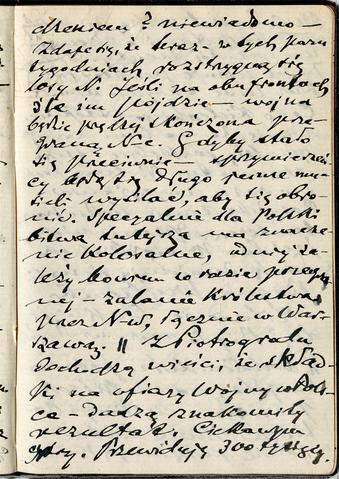 niewiadomo –
Zdaje się, że teraz – w tych paru
tygodniach rozstrzygną się
losy N. Jeśli na obu frontach
źle im pójdzie – wojna
będzie prędzej skończona prze-
graną N-c. Gdyby stało
się przeciwnie – sprzymierzeń-
cy będą się długo jeszcze mu-
sieli wysilać, aby się obro-
nić. Specyalnie dla Polski
bitwa tutejsza ma znacze-
nie kolosalne, od niej za-
leży bowiem w razie przegra-
nej – zalanie Królestwa
przez N-w, łącznie w War-
szawą. || Z Piotrogradu
dochodzą wieści, że skład-
ki na ofiary Wojny w Pols-
ce – dadzą znakomity
rezultat. Ciekawym
cyfry. Przewidują 300 tysięcy.